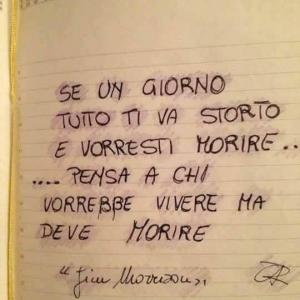 SE UN GIORNO
TUTTO TI VA STORTO
E VORRESTI MORIRE..
.... PENSA A CHI
VORREBBE VIVERE MA
DEVE MORIRE
"Jim Morrison"